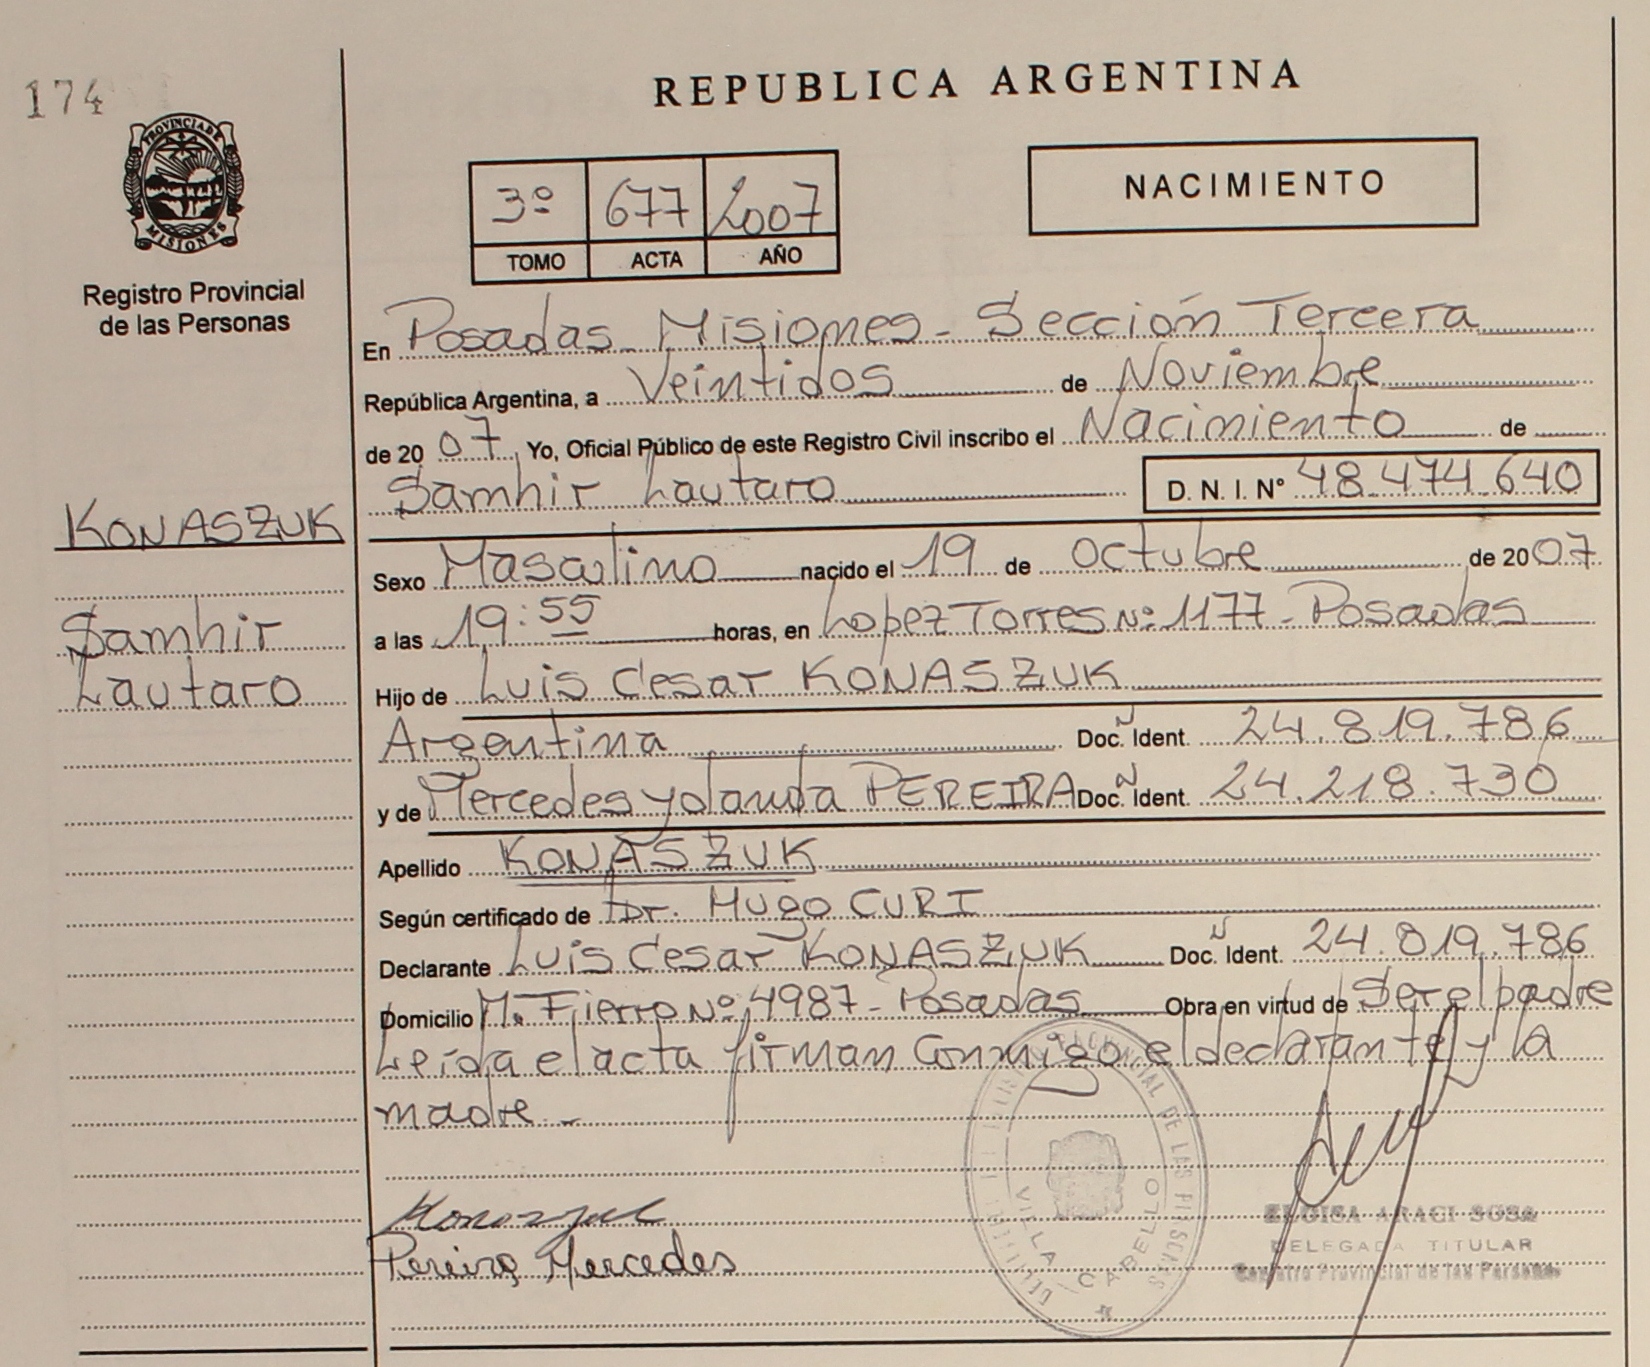 174
REPUBLICA ARGENTINA
PROVINCIA DE
MISIONES
Registro Provincial
de las Personas
3º 677 2007
TOMO ACTA AÑO
NACIMIENTO
En Posadas Misiones - Sección Tercera
República Argentina, a Veintidos de Noviembre
de 20 07 Yo, Oficial Público de este Registro Civil inscribo el Nacimiento de
Samhir Lautaro D. N. I. Nº 48.474.640
KONASZUK
Samhir
Lautaro
Sexo Masculino nacido el 19 de octubre de 2007
a las 19:55 horas, en Lopez Torres Nº 1177 - Posadas
Hijo de Luis Cesar KONASZUK
Argentina Doc. Ident. 24.819.786
y de Mercedes Yolanda PEREIRA Doc. Ident. 24.218.730
Apellido KONASZUK
Según certificado de Dr. Hugo CURI
Declarante Luis Cesar KONASZUK Doc. Ident. 24.819.786
Domicilio M. Fierro Nº 4987 - Posadas Obra en virtud de Ser el padre
Leída el acta firman Conmigo el declarante y la
madre -
Pereira Mercedes
VILLA CABELLO
ELOISA ARACI SOSA
DELEGADA TITULAR
Registro Provincial de las Personas